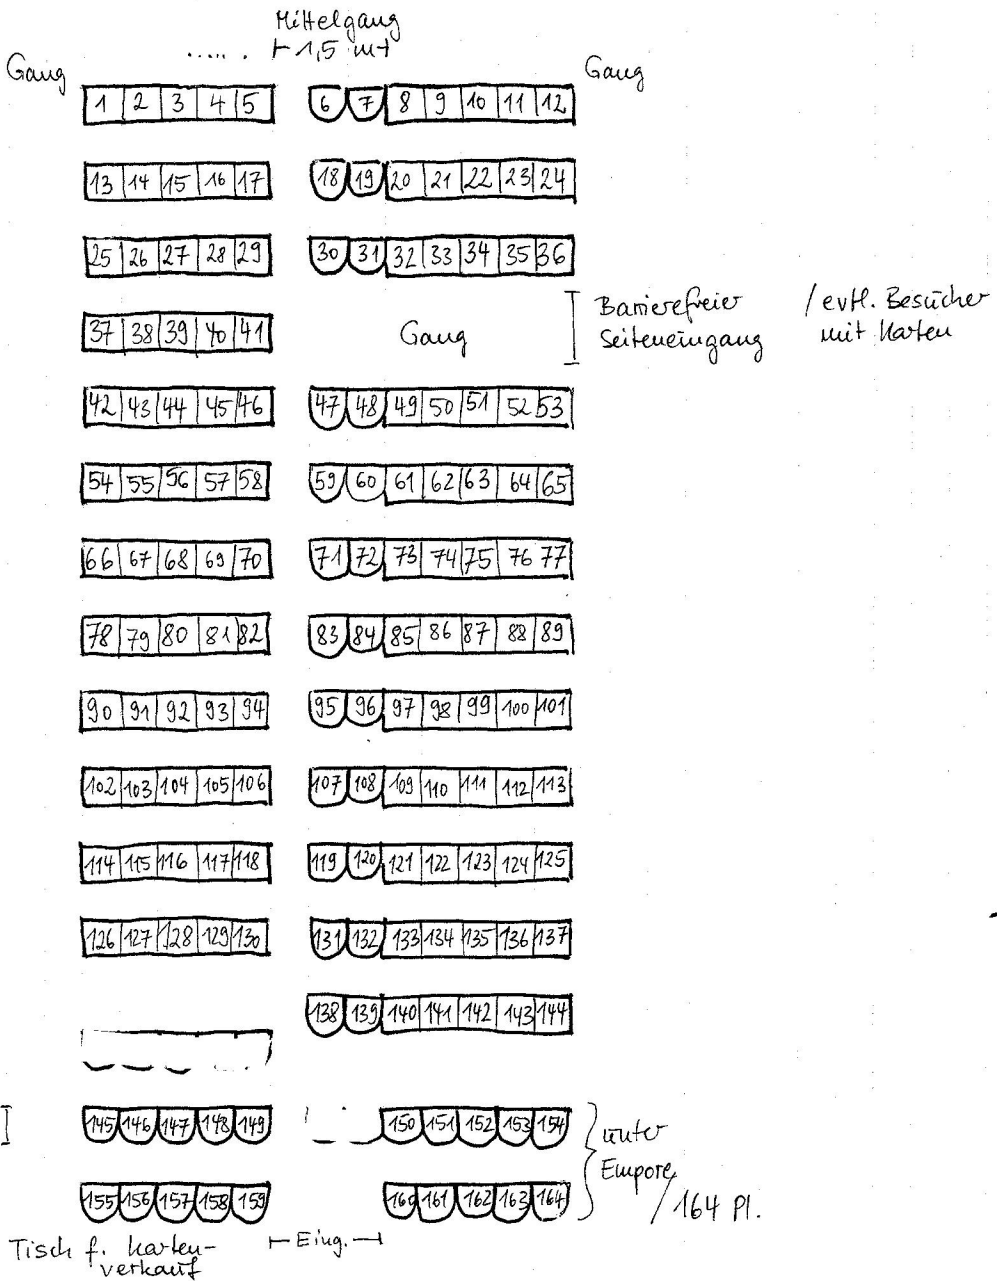 Mittelgang
..... ⊢1,5 m⊣
Gang Gang
1 2 3 4 5 6 7 8 9 10 11 12
13 14 15 16 17 18 19 20 21 22 23 24
25 26 27 28 29 30 31 32 33 34 35 36
37 38 39 40 41 Gang Barrierefreier / evtl. Besucher
Seiteneingang mit Karten
42 43 44 45 46 47 48 49 50 51 52 53
54 55 56 57 58 59 60 61 62 63 64 65
66 67 68 69 70 71 72 73 74 75 76 77
78 79 80 81 82 83 84 85 86 87 88 89
90 91 92 93 94 95 96 97 98 99 100 101
102 103 104 105 106 107 108 109 110 111 112 113
114 115 116 117 118 119 120 121 122 123 124 125
126 127 128 129 130 131 132 133 134 135 136 137
138 139 140 141 142 143 144
145 146 147 148 149 150 151 152 153 154 unter
Empore
155 156 157 158 159 160 161 162 163 164 / 164 Pl.
Tisch f. Karten- ⊢ Eing. ⊣
verkauf